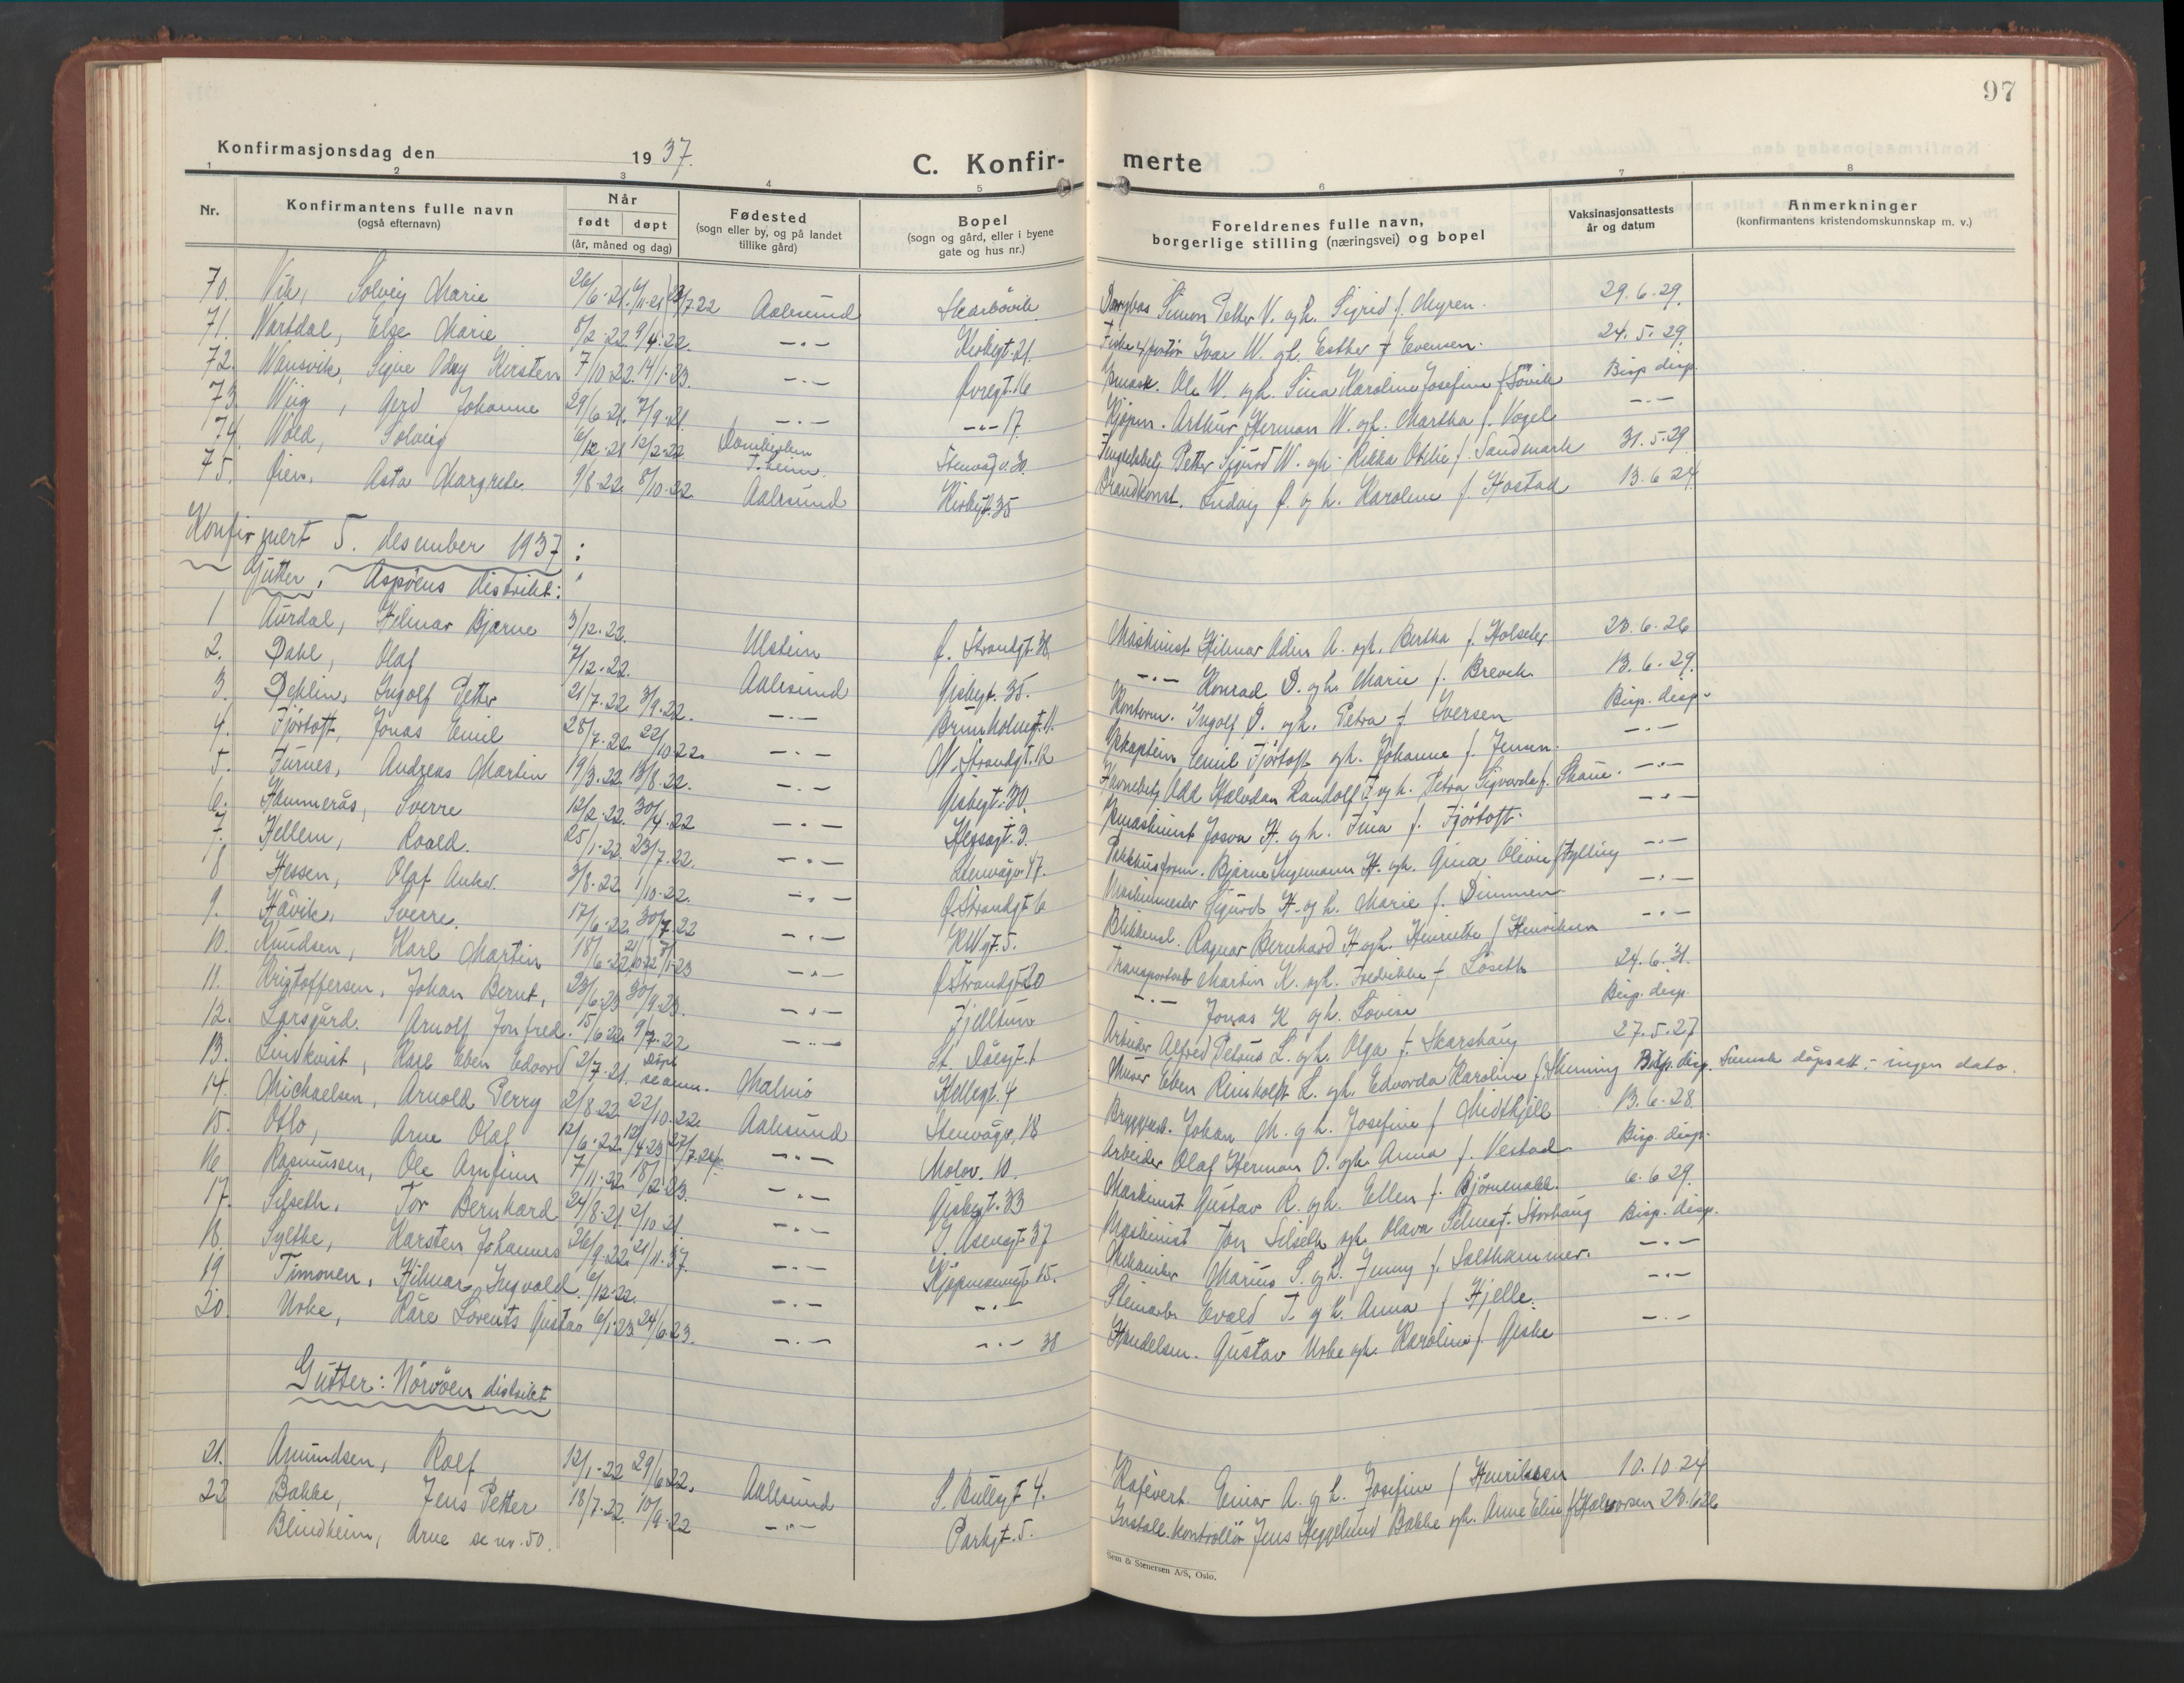 97
Konfirmasjonsdag den 1937.
C. Konfir- merte
1 2 3 4 5 6 7 8
Nr. Konfirmantens fulle navn (også efternavn) Når født døpt (år, måned og dag) Fødested (sogn eller by, og på landet tillike gård) Bopel (sogn og gård, eller i byene gate og hus nr.) Foreldrenes fulle navn, borgerlige stilling (næringsvei) og bopel Vaksinasjonsattests år og datum Anmerkninger (konfirmantens kristendomskunnskap m. v.)
70. Vik, Solveig Marie 26/6-21. Aalesund Skarbövik Simon Petter V. og h. Sigrid f. Myren. 29.6.29.
71. Vartdal, Else Marie 8/2-22. 9/4-22. -"- Kirkegt. 21. Ivar W. og h. Esther f Evensen. 24.5.29.
72. Wansvik, Signe Odny Kirsten 7/10-22. 14/1-23. -"- Øvregt. 16 Ole W. og h. Sina Karoline Josefine f. Sövik Bisp. disp.
73. Wiig, Gerd Johanne 29/6-21. 7/9-21. -"- -"- 17. Kjöpm. Arthur Herman W. og h. Martha f. Vogel -"-
74. Wold, Solveig 6/12-21 12/2-22 T.heim Stenvåg v. 30. Petter Sigurd W. og h. Rikka Otilie f. Sandmark 31.5.29
75. Øien, Asta Margrete 9/8-22. 8/10-22. Aalesund Kirkegt. 35 Brandkonst. Ludvig Ø. og h. Karoline f. Hostad 13.6.24
Konfirmert 5. desember 1937:
Gutter, Aspöens distrikt:
1 Aurdal, Hilmar Bjarne 3/12-22. Ulstein Ø. Strandgt. 38. Maskinist Hilmar Adin A. og h. Bertha f. Holseter 20.6.26
2. Dahl, Olaf 7/12-22. Aalesund Giskegt. 35. -"- Konrad D. og h. Marie f. Brevik 13.6.29.
3. Dehlin, Ingolf Petter 21/7-22 3/9-22. -"- Brunholmgt. 11. Kontorm. Ingolf D. og h. Petra f Iversen Bisp. disp.
4. Fjörtoft, Jonas Emil 28/7-22. 22/10-22. -"- N. Strandgt. 12 Emil Fjörtoft og h. Johanne f. Jensen. -"-
5. Furnes, Andreas Martin 19/3-22 13/8-22. -"- Giskegt. 30. Odd Halvdan Randolf F. og h. Petra Sigvarda f. Skaue. -"-
6. Hammerås, Sverre 12/2-22. 30/4-22 -"- Hessagt. 3. Josva H. og h. Tina f. Fjörtoft. -"-
7. Hellem, Roald. 25/1-22. 23/7-22. -"- Stenvågv. 47. Pakkhusform. Bjarne Ingemann H. og h. Gina Olivie f. Hylling -"-
8 Hessen, Olaf Anker. 3/8-22. 1/10-22. -"- Ø. Strandgt. 6 Maskinmester Sigurd H. og h. Marie f. Dimmen -"-
9. Håvik, Sverre. 17/6-22. 30/7-22 -"- KWgt. 5. Blikkensl. Ragnar Bernhard H. og h. Henriette f Henriksen -"-
10. Knudsen, Karl Martin 18/6-22. 21/10-22 -"- Ø. Strandgt. 20 Transportarb Martin K. og h. Fredrikke f Löseth 24.6.31.
11. Kristoffersen, Johan Bernt, 23/6-23 30/9-23. -"- Fjelltun -"- Jonas K og h. Lovise Bisp. disp.
12. Larsgård. Arnolf Jonfred. 15/6-22. 9/7-22 -"- St. Olavsgt. 1 Arbeider Alfred Petrus L. og h. Olga f. Skarshaug 27.5.27
13. Lindkvist, Karl Eben Edvard 2/7-21. Döpt se anm. Malmö Hellegt. 4 Murer Eben Reinholdt L. og h. Edvarda Karoline f. Bisp. disp. Svensk dåpsatt. - ingen dato.
14. Michaelsen, Arnold Perry 2/8-22 22/10-22. Aalesund Stenvågv. 18 Johan M. og h. Josefine f Midtkjell 13.6.28.
15. Otlo, Arne Olaf 12/6-22. 12/4-23 -"- Molov. 10. Arbeider Olaf Herman O. og h. Anna f. Vestad Bisp. disp.
16 Rasmussen, Ole Arnfinn 7/11-22. 18/2-23. -"- Giskegt. 33 Maskinist Gustav R. og h. Ellen f. Björnenakk. 6.6.29.
17. Silseth, Tor Bernhard 24/8-21. 2/10-21. -"- J. Aasengt. 37 Maskinist Jon Silseth og h. Olava f. Storhaug Bisp. disp.
18. Sylthe, Karsten Johannes 26/9-22. 21/11-37. -"- Kjöpmannsgt. 15. Mekaniker Marius S. og h. Jenny f. Salthammer. -"-
19 Timonen, Hilmar Ingvald. 6/12-22. -"- -"- Evald T. og h. Anna f. Hjelle. -"-
20. Urke, Kåre Lorents Gustav 6/1-23 24/6-23. -"- -"- 38 Handelsm. Gustav Urke og h. Karoline f. Giske -"-
Gutter: Nörvöen distrikt
21. Amundsen, Rolf 12/1-22 29/6-22. Aalesund S. Bullsgt 4. Kafévert. Einar A. og h. Josefine f Henriksen 10.10.24
22 Bakke, Jens Petter 18/7-22. 10/9-22 -"- Parkgt. 5. Install. kontrollör Jens Heggelund Bakke og h. Anne Elise f Halvorsen 23.6.26
Blindheim, Arne se nr. 50.
Sem & Stenersen A/S, Oslo.